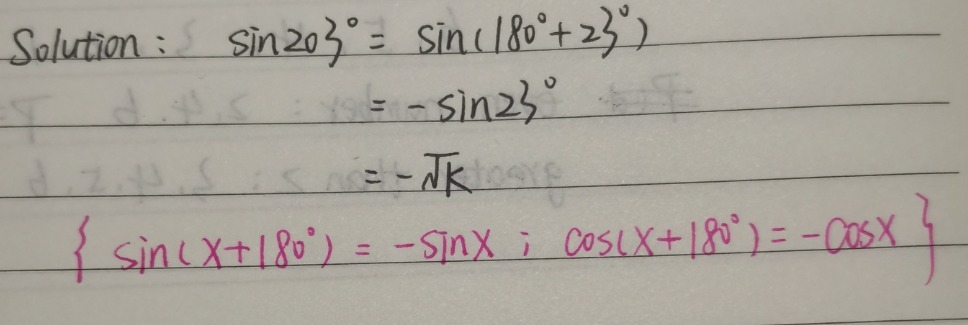 Solution: sin203° = sin(180°+23°)
= -sin23°
= -√k
{ sin(x+180°) = -sinx ; cos(x+180°) = -cosx }